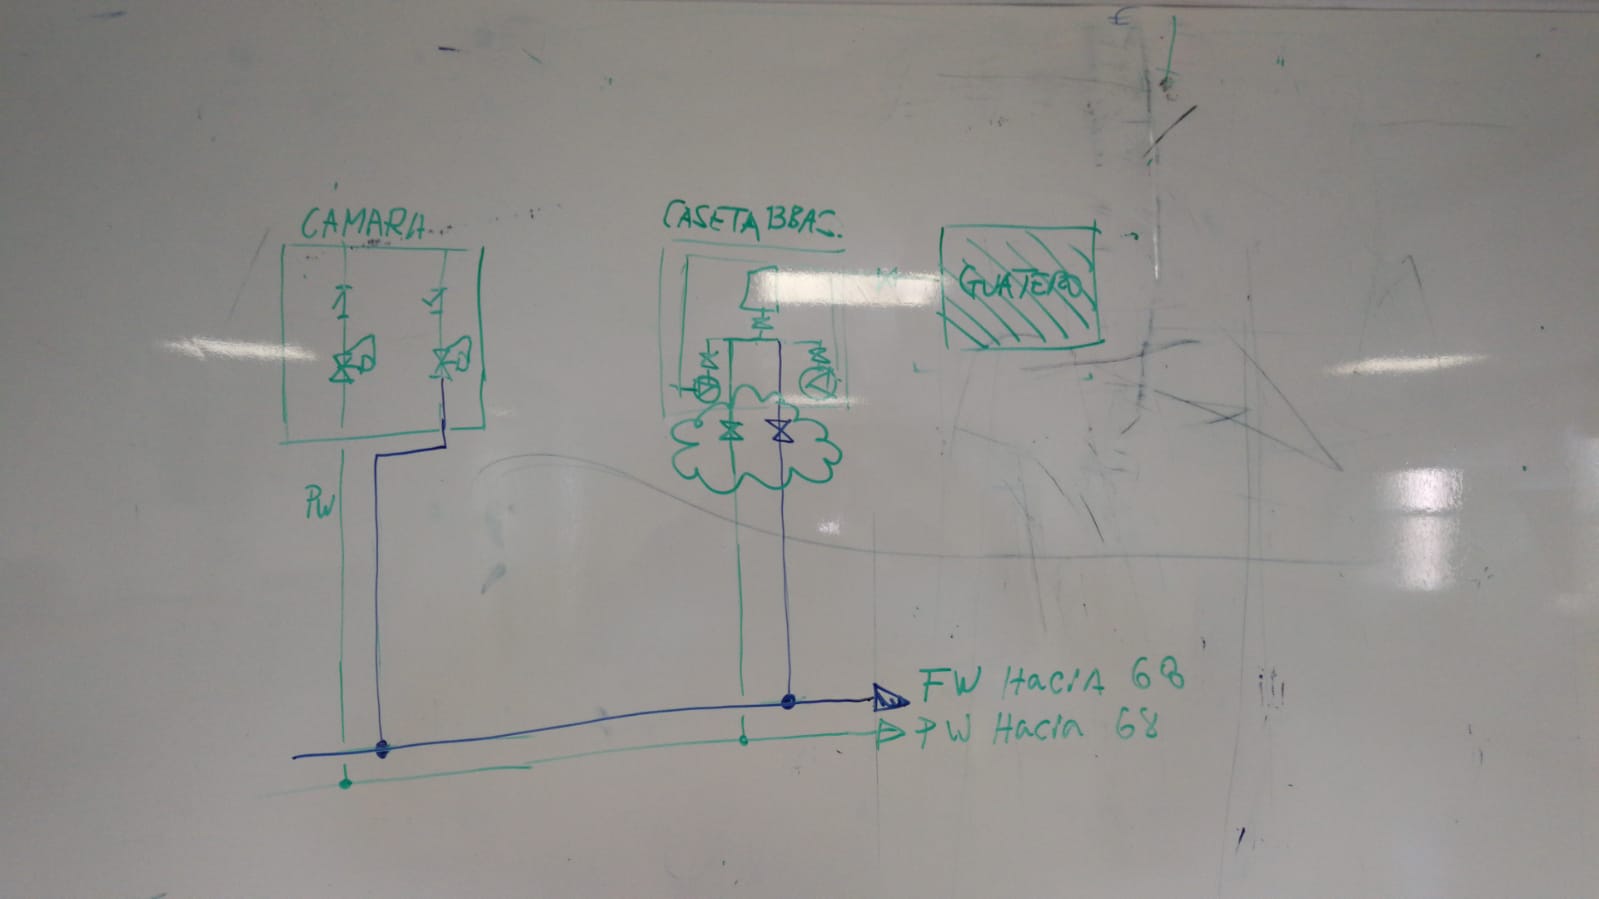 CAMARA
CASETA BBAS.
GUATERO
PW
FW HaciA 68
PW Hacia 68